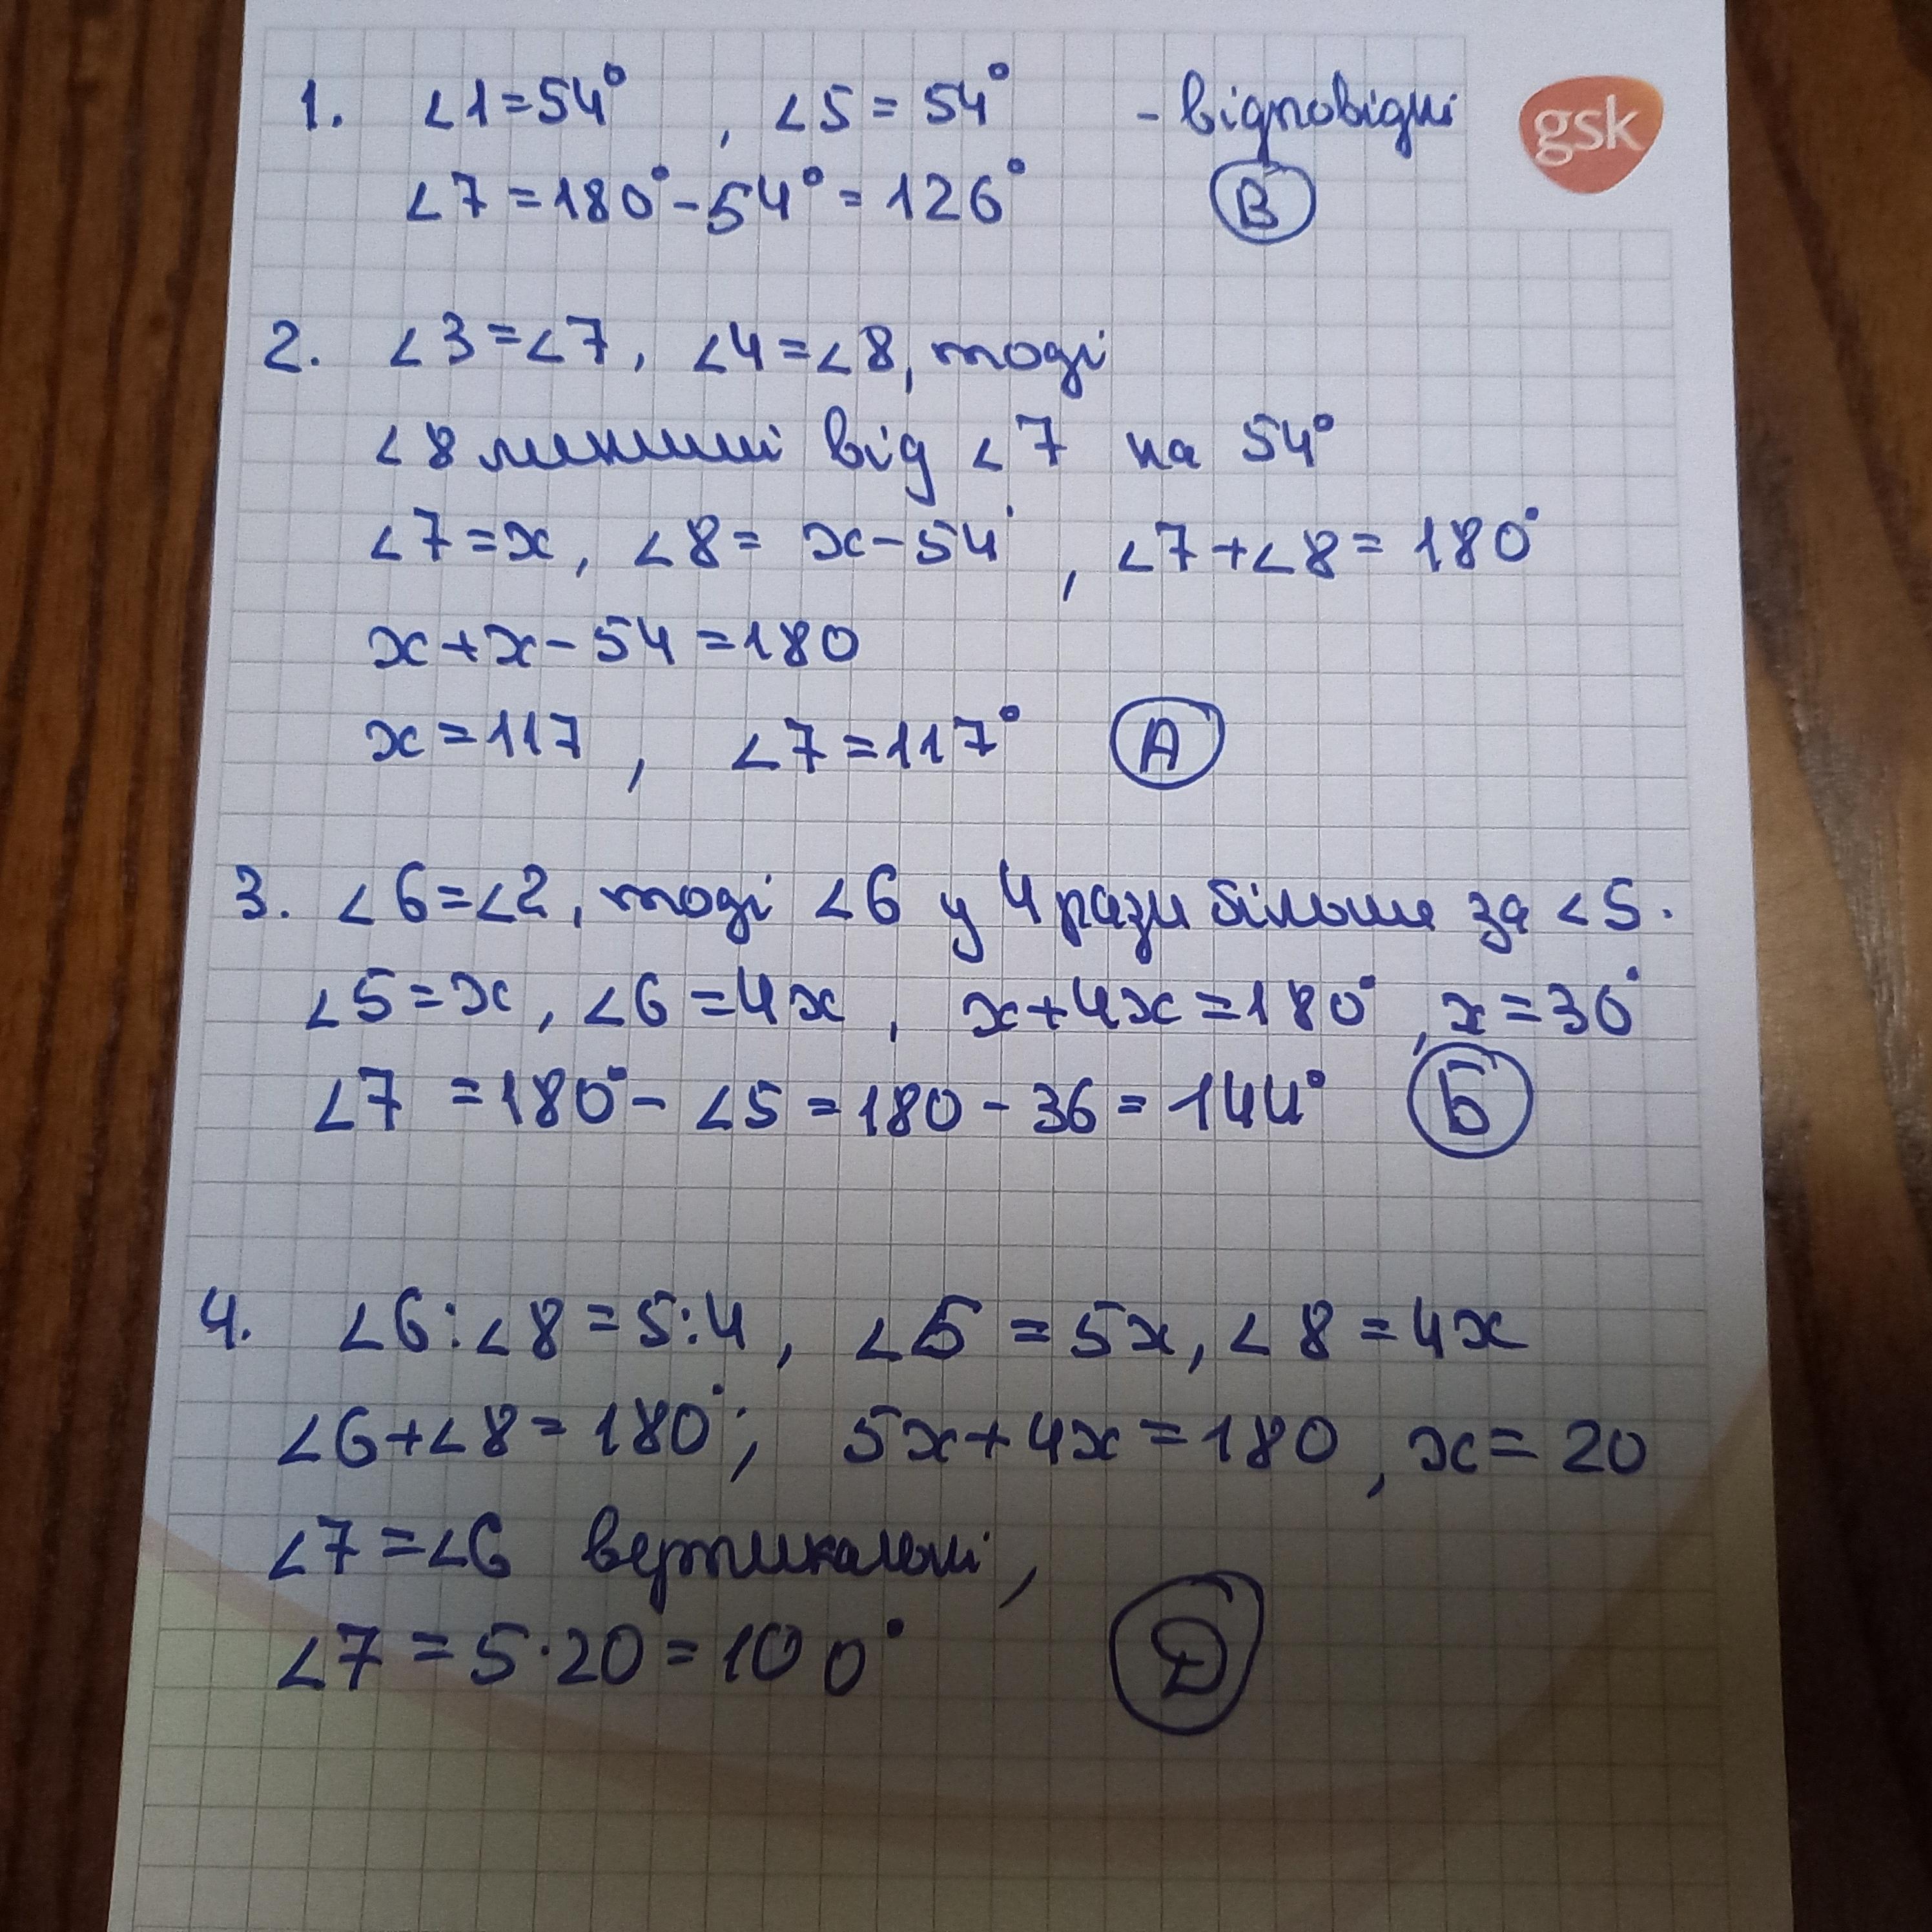 1. ∠1=54°, ∠5=54° - відповідні
gsk
∠7=180°-54°=126° В
2. ∠3=∠7, ∠4=∠8, тоді
∠8 менший від ∠7 на 54°
∠7=x, ∠8= x-54°, ∠7+∠8=180°
x+x-54=180
x=117, ∠7=117° А
3. ∠6=∠2, тоді ∠6 у 4 рази більше за ∠5.
∠5=x, ∠6=4x, x+4x=180°, x=36°
∠7=180°-∠5=180-36=144° Б
4. ∠6:∠8=5:4, ∠5=5x, ∠8=4x
∠6+∠8=180°; 5x+4x=180, x=20
∠7=∠6 вертикальні,
∠7=5·20=100° Д